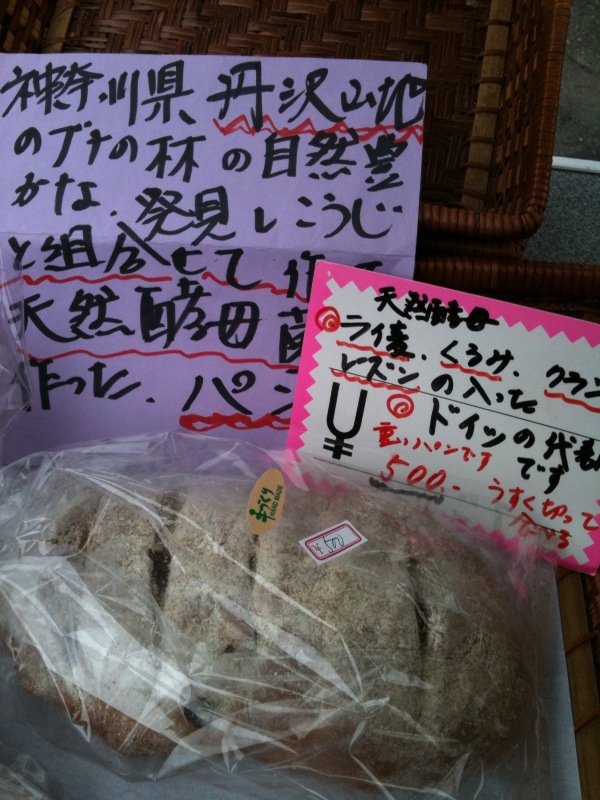 神奈川県 丹沢山地
のブナの林の自然豊
かな、発見しこうじ
と組合せて作
天然酵母菌
作った、パン
天然酵母
ライ麦、くるみ、クラン
レズンの入った
ドイツの代表
です
重いパンです
¥
500- うすく切って
手づくり
HAND MADE
¥500